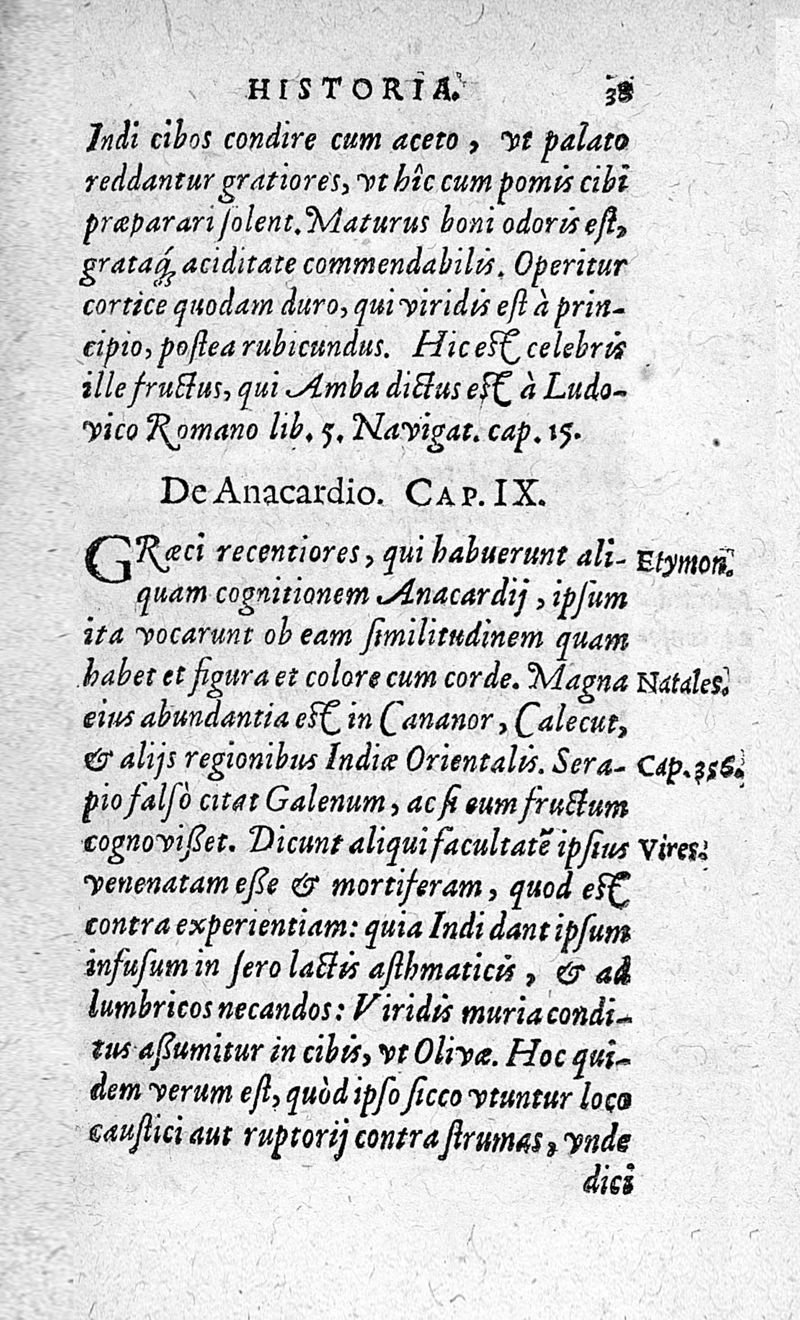 HISTORIA. 38
Indi cibos condire cum aceto, vt palato
reddantur gratiores, vt hîc cum pomis cibi
præparari solent. Maturus boni odoris est,
grataq́; aciditate commendabilis. Operitur
cortice quodam duro, qui viridis est à prin-
cipio, postea rubicundus. Hic est celebris
ille fructus, qui Amba dictus est à Ludo-
vico Romano lib. 5. Navigat. cap. 15.
De Anacardio. CAP. IX.
GRæci recentiores, qui habuerunt ali- Etymon.
quam cognitionem Anacardij, ipsum
ita vocarunt ob eam similitudinem quam
habet et figura et colore cum corde. Magna Natales.
eius abundantia est in Cananor, Calecut,
& alijs regionibus Indiæ Orientalis. Sera- Cap. 356.
pio falsò citat Galenum, ac si eum fructum
cognovißet. Dicunt aliqui facultatẽ ipsius Vires.
venenatam eße & mortiferam, quod est
contra experientiam: quia Indi dant ipsum
infusum in sero lactis asthmaticis, & ad
lumbricos necandos: Viridis muria condi-
tus aßumitur in cibis, vt Olivæ. Hoc qui-
dem verum est, quòd ipso sicco vtuntur loco
caustici aut ruptorij contra strumas, vnde
dici